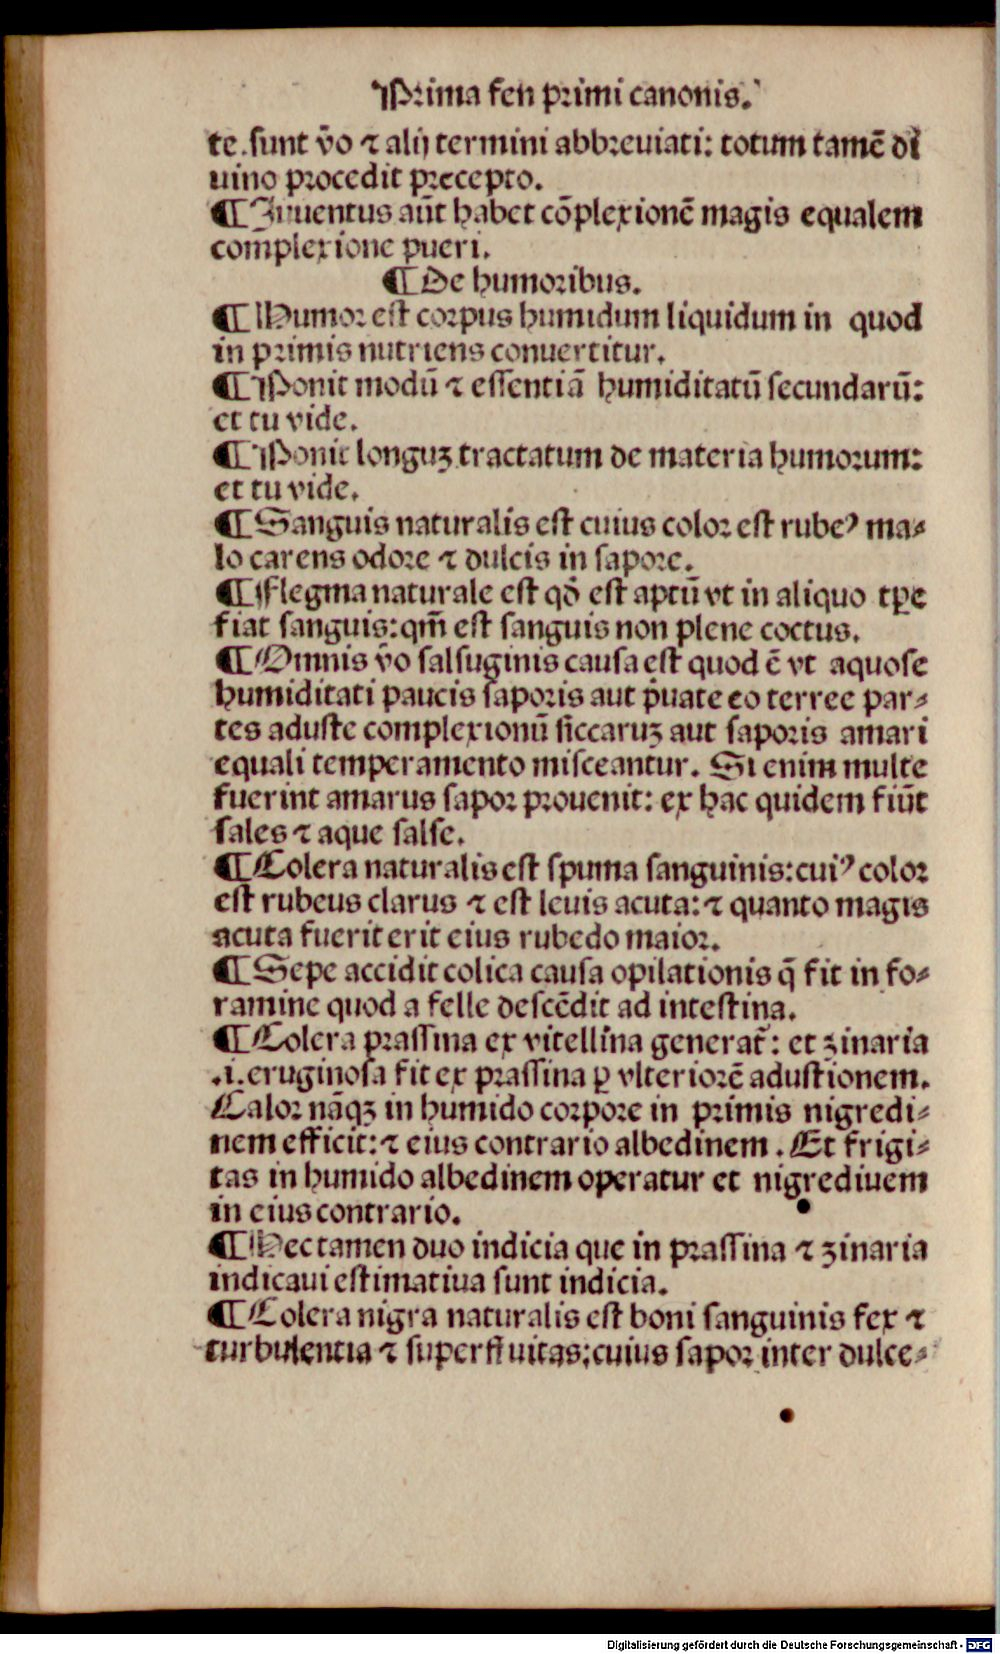 Prima fen primi canonis.
te. sunt v̄o ⁊ alij termini abbreuiati: totum tamē di
uino procedit precepto.
¶ Iuuentus aūt habet cōplexionē magis equalem
complexione pueri.
¶ De humoribus.
¶ Humor est corpus humidum liquidum in quod
in primis nutriens conuertitur.
¶ Ponit modū ⁊ essentiā humiditatū secundarū:
et tu vide.
¶ Ponit longuꝫ tractatum de materia humorum:
et tu vide.
¶ Sanguis naturalis est cuius color est rubeꝰ ma⸗
lo carens odore ⁊ dulcis in sapore.
¶ Flegma naturale est qd̄ est aptū vt in aliquo tꝑe
fiat sanguis: qm̄ est sanguis non plene coctus.
¶ Omnis v̄o salsuginis causa est quod ē vt aquose
humiditati paucis saporis aut p̄uate eo terree par⸗
tes aduste complexionū siccaruꝫ aut saporis amari
equali temperamento misceantur. Si enim multe
fuerint amarus sapor prouenit: ex hac quidem fiūt
sales ⁊ aque salse.
¶ Colera naturalis est spuma sanguinis: cuiꝰ color
est rubeus clarus ⁊ est leuis acuta: ⁊ quanto magis
acuta fuerit erit eius rubedo maior.
¶ Sepe accidit colica causa opilationis q̄ fit in fo⸗
ramine quod a felle descēdit ad intestina.
¶ Colera prassina ex vitellina generat̄: et zinaria
.i. eruginosa fit ex prassina ꝑ vlteriorē adustionem.
Calor nāqꝫ in humido corpore in primis nigredi⸗
nem efficit: ⁊ eius contrario albedinem. Et frigi⸗
tas in humido albedinem operatur et nigrediuem
in eius contrario.
¶ Nec tamen duo indicia que in prassina ⁊ zinaria
indicaui estimatiua sunt indicia.
¶ Colera nigra naturalis est boni sanguinis fex ⁊
turbulentia ⁊ superfluitas: cuius sapor inter dulce⸗
Digitalisierung gefördert durch die Deutsche Forschungsgemeinschaft - DFG